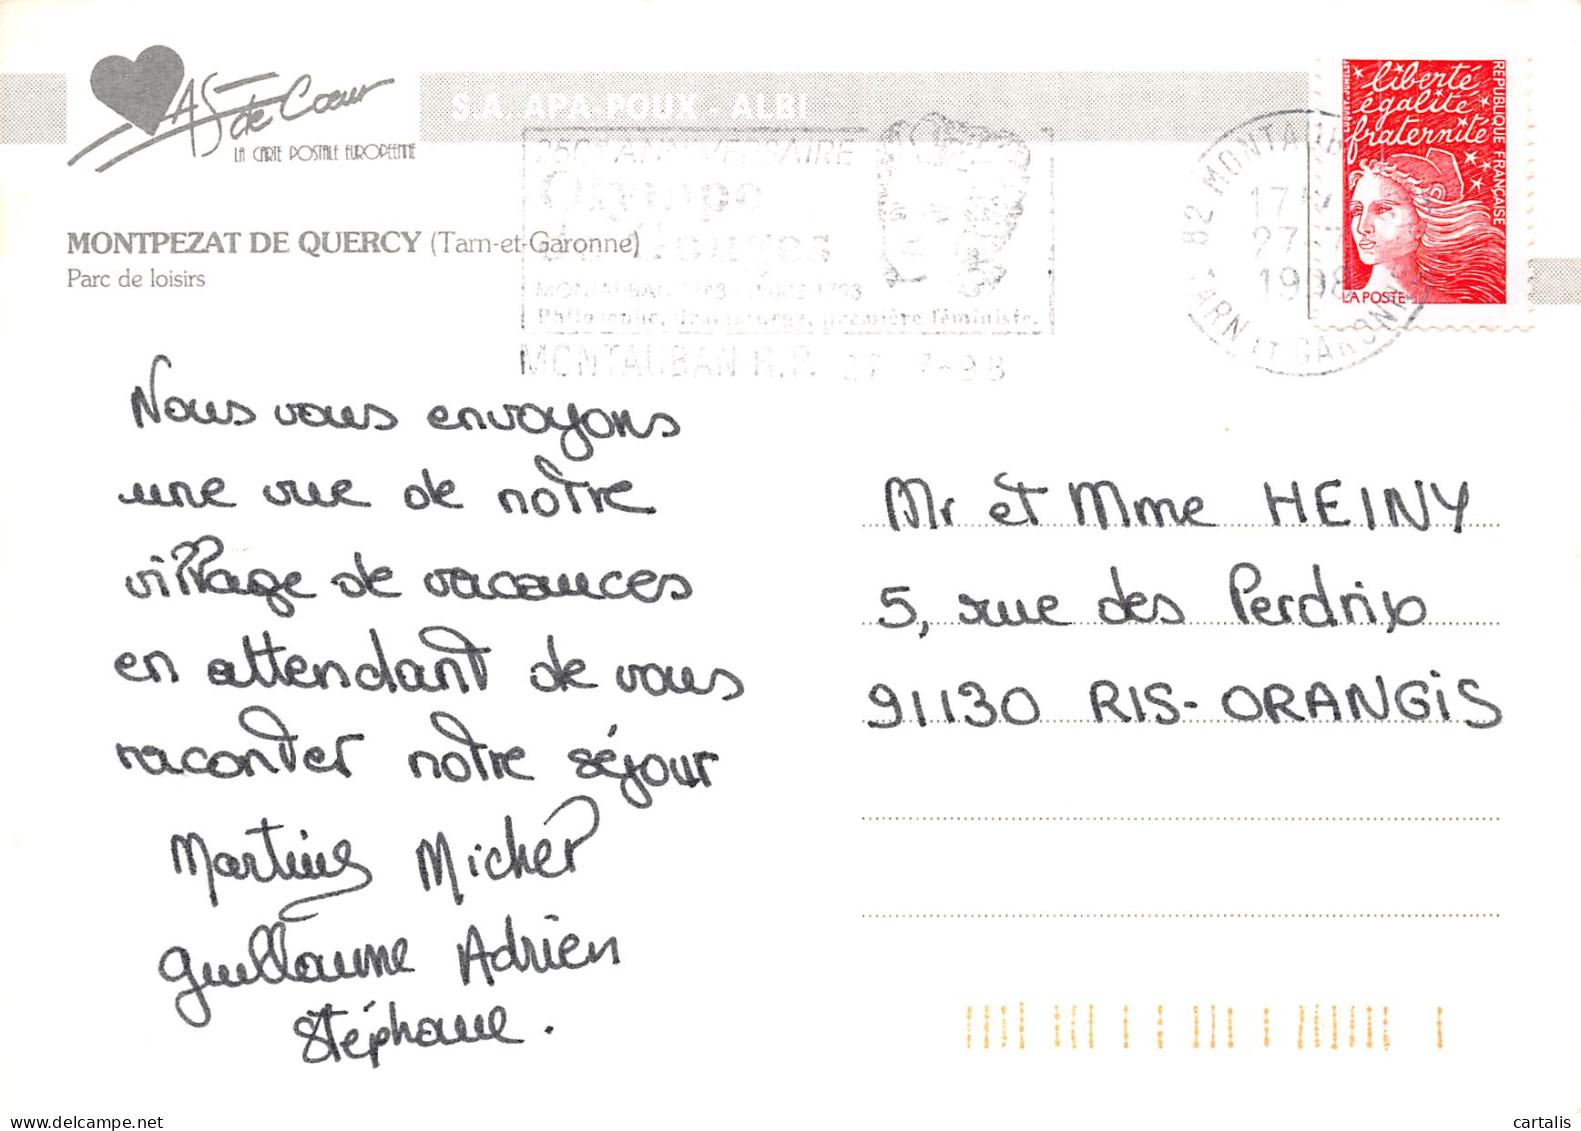 AS de Cœur
LA CARTE POSTALE EUROPÉENNE
S.A. APA-POUX - ALBI
MONTPEZAT DE QUERCY (Tarn-et-Garonne)
Parc de loisirs
250e ANNIVERSAIRE
Olympe
de Gouges
MONTAUBAN 1748 - PARIS 1793
Philosophe, dramaturge, première féministe.
MONTAUBAN R.P. 27 7-98
82 MONTAUB
27-7
1998
TARN ET GARONNE
liberté
égalité
fraternité
REPUBLIQUE FRANÇAISE
LA POSTE
Nous vous envoyons
une vue de notre
village de vacances
en attendant de vous
raconter notre séjour
Martine Michel
Guillaume Adrien
Stéphane.
Mr et Mme HEINY
5, rue des Perdrix
91130 RIS-ORANGIS
cartalis
delcampe.net